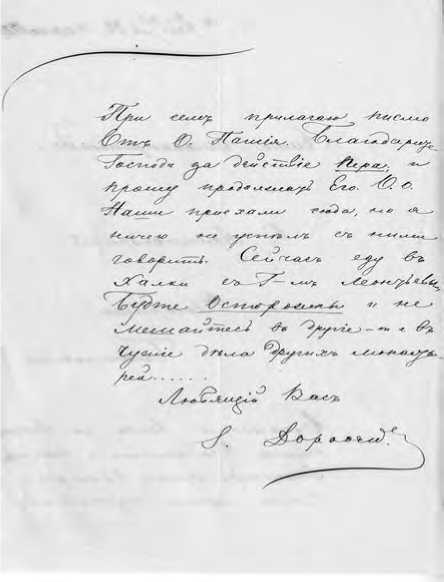 При семъ прилагаю писмо
Отъ О. Паисія. Благодарю
Господа за действіе Пера, и
прошу продолжать Его. О.о.
Наши приехали сюда, но я
ничего не успелъ съ ними
говорить. Сейчасъ еду въ
Халки съ Г-мъ Леонтьевы
Будте Осторожны и не
мешайтесь въ другіе – т. е. въ
чужіе дѣла другихъ монасты
рей......
Любящій Васъ
І. Дороѳей